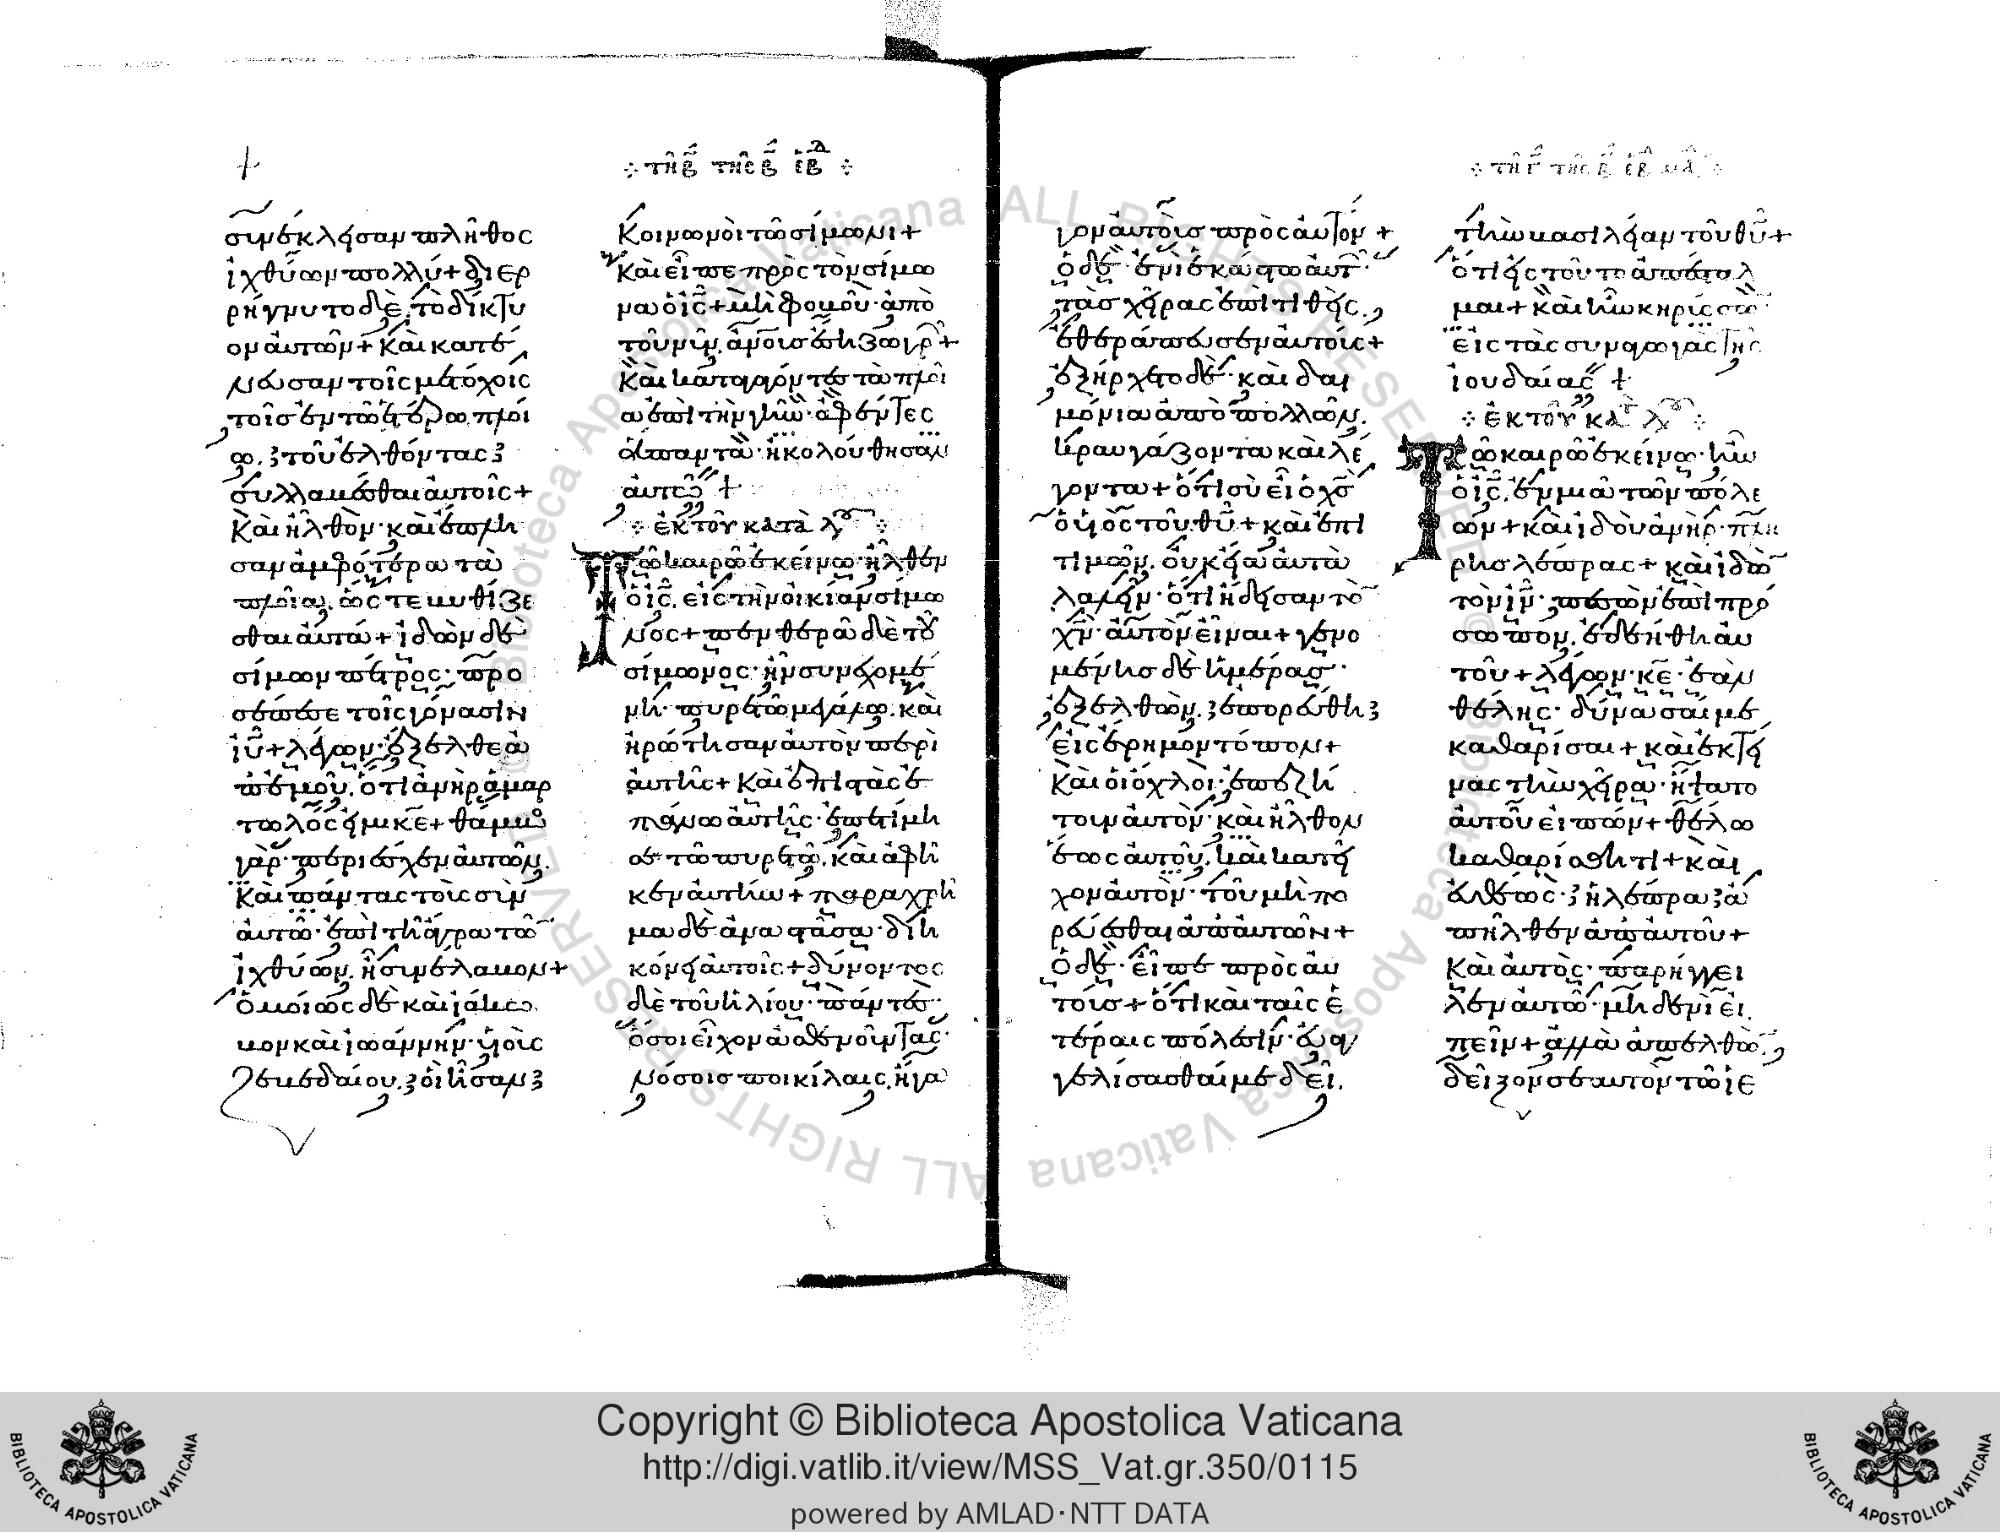 τῆ β̄ τῆς β̄ ἑβδ
συνέκλεισαν πλῆθος
ἰχθύων πολλύ + διερ
ρήγνυτο δὲ, τὸ δίκτυ
ον αὐτῶν + Καὶ κατέ
νευσαν τοῖς μετόχοις
τοῖς ἐν τῷ ἑτέρω πλοί
ω, τοῦ ἐλθόντας
συλλαβέσθαι αὐτοῖς +
Καὶ ἦλθον· καὶ ἔπλη
σαν ἀμφότερα τὰ
πλοῖα, ὥς τε βυθίζε
σθαι αὐτά + ἰδὼν δὲ
σίμων πέτρος· προ
σέπεσε τοῖς γόνασιν
ἰῦ + λέγων· ἔξελθε ἀ
π' ἐμοῦ, ὅτι ἀνὴρ ἁμαρ
τωλός εἰμι κε̄ + θάμβος
γὰρ· περιέσχεν αὐτῶν,
Καὶ πάντας τοὺς σὺν
αὐτῷ· ἐπὶ τῆ ἄγρα τῶν
ἰχθύων, ἧ συνέλαβον +
Ὁμοίως δὲ καὶ ἰάκω
βον καὶ ἰωάννην· υἱοὺς
ζεβεδαίου, οἳ ἦσαν
Κοινωνοὶ τῷ σίμωνι +
Καὶ εἶπε πρὸς τὸν σίμω
να ὁ ις̄ + μὴ φοβοῦ· ἀπὸ
τοῦ νῦν, ἀνους ἔση ζωγρῶν +
Καὶ καταγαγόντες τὰ πλοῖ
α ἐπὶ τὴν γῆν· ἀφέντες
ἅπαντα· ἠκολούθησαν
αὐτῷ +
ἐκ τοῦ κατὰ λου
Τῷ καιρῷ ἐκείνω· ἦλθεν
ὁ ις̄, εἰς τὴν οἰκίαν σίμω
νος + πενθερὰ δὲ τοῦ
σίμωνος· ἦν συνεχομέ
νη· πυρετῷ μεγάλω, καὶ
ἠρώτησαν αὐτὸν περὶ
αὐτῆς + Καὶ ἐπιστὰς ἐ
πάνω αὐτῆς· ἐπετίμη
σε τῷ πυρετῷ, καὶ ἀφῆ
κεν αὐτήν + παραχρῆ
μα δὲ ἀναστᾶσα· διη
κόνει αὐτοῖς + δύνοντος
δὲ τοῦ ἡλίου· πάντες·
ὅσοι εἶχον ἀσθενοῦντας·
νόσοις ποικίλαις, ἤγα
τῆ γ̄ τῆς β̄ ἑβδ
γον αὐτοὺς πρὸς αὐτόν +
ὁ δὲ· ἑνὶ ἑκάστω αὐτῶν·
τὰς χεῖρας ἐπιτιθεὶς,
ἐθεράπευσεν αὐτούς +
ἐξήρχετο δὲ· καὶ δαι
μόνια ἀπὸ πολλῶν,
κραυγάζοντα καὶ λέ
γοντα + ὅτι σὺ εἶ ὁ χς̄
ὁ υἱὸς τοῦ θῦ + καὶ ἐπι
τιμῶν, οὐκ εἴα αὐτὰ
λαλεῖν· ὅτι ἤδεισαν τὸν
χν̄· αὐτὸν εἶναι + γενο
μένης δὲ ἡμέρας·
ἐξελθὼν, ἐπορεύθη
εἰς ἔρημον τόπον +
Καὶ οἱ ὄχλοι· ἐπεζή
τουν αὐτόν· καὶ ἦλθον
ἕως αὐτοῦ, καὶ κατεῖ
χον αὐτὸν· τοῦ μὴ πο
ρεύεσθαι ἀπ' αὐτῶν +
Ὁ δὲ· εἶπε πρὸς αὐ
τούς + ὅτι καὶ ταῖς ἑ
τέραις πόλεσιν· εὐαγ
γελίσασθαί με δεῖ,
τὴν βασιλείαν τοῦ θῦ +
ὅτι εἰς τοῦτο ἀπέσταλ
μαι + Καὶ ἦν κηρύσσων
εἰς τὰς συναγωγὰς τῆς
ἰουδαίας +
ἐκ τοῦ κατ λου
Τῷ καιρῷ ἐκείνω· ἦν
ὁ ις̄, ἐν μιᾶ τῶν πόλε
ων + καὶ ἰδοὺ ἀνὴρ· πλή
ρης λέπρας + καὶ ἰδὼν
τὸν ιν̄· πεσὼν ἐπὶ πρό
σωπον, ἐδεήθη αὐ
τοῦ + λέγων· κε̄· ἐὰν
θέλης· δύνασαί με
καθαρίσαι + καὶ ἐκτεί
νας τὴν χεῖρα· ἥψατο
αὐτοῦ εἰπών + θέλω
καθαρίσθητι + καὶ
εὐθέως· ἡ λέπρα ἀ
πῆλθεν ἀπ' αὐτοῦ +
Καὶ αὐτὸς· παρήγγει
λεν αὐτῷ· μηδενὶ εἰ
πεῖν + ἀλλὰ ἀπελθὼν,
δεῖξον σεαυτὸν τῷ ἱε
Copyright © Biblioteca Apostolica Vaticana
http://digi.vatlib.it/view/MSS_Vat.gr.350/0115
powered by AMLAD·NTT DATA
BIBLIOTECA APOSTOLICA VATICANA
BIBLIOTECA APOSTOLICA VATICANA